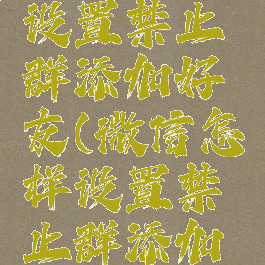 设置禁止
群添加好
友(微信怎
样设置禁
止群添加